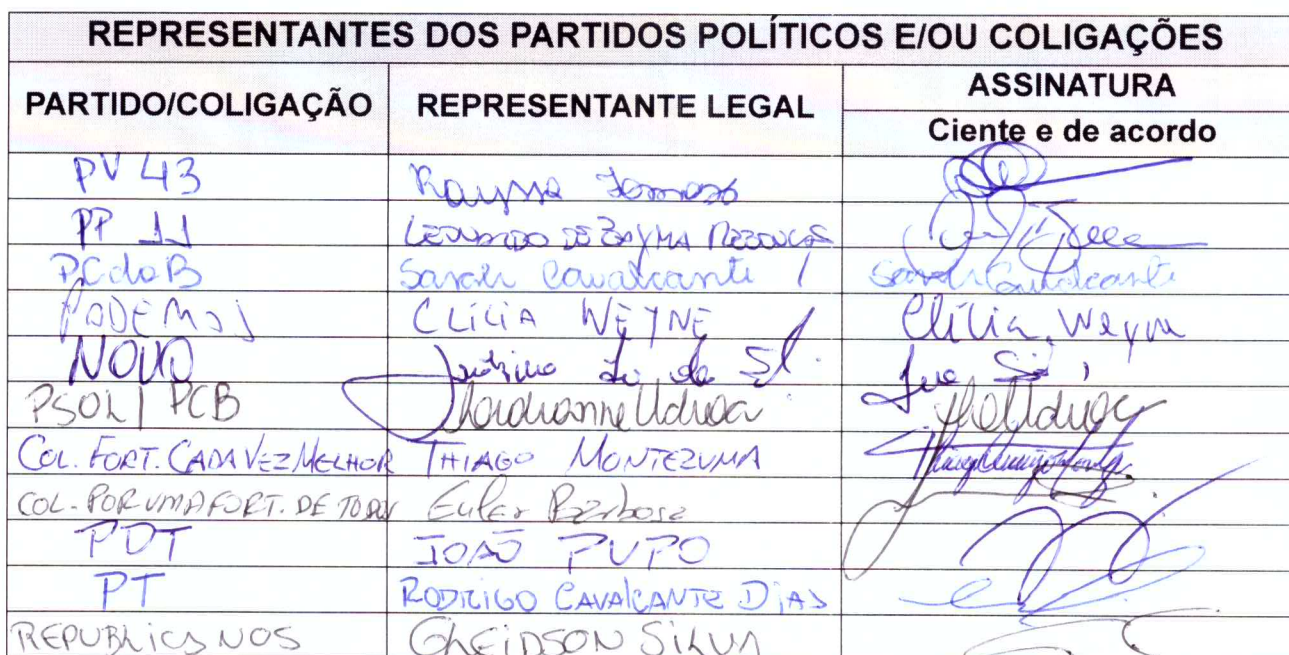 REPRESENTANTES DOS PARTIDOS POLÍTICOS E/OU COLIGAÇÕES
PARTIDO/COLIGAÇÃO REPRESENTANTE LEGAL ASSINATURA
Ciente e de acordo
PV 43 Rayssa
PP 11 LEONARDO DE BAYMA REBOUÇAS
PCdoB Sarah Cavalcante Sarah Cavalcante
PODEMOS CLÍCIA WEYNE Clícia Weyne
NOVO da
PSOL / PCB
COL. FORT. CADA VEZ MELHOR THIAGO MONTEZUMA
COL. POR UMA FORT. DE TODOS Euler Barbosa
PDT JOÃO PUPO
PT RODRIGO CAVALCANTE DIAS
REPUBLICANOS GLEIDSON SILVA